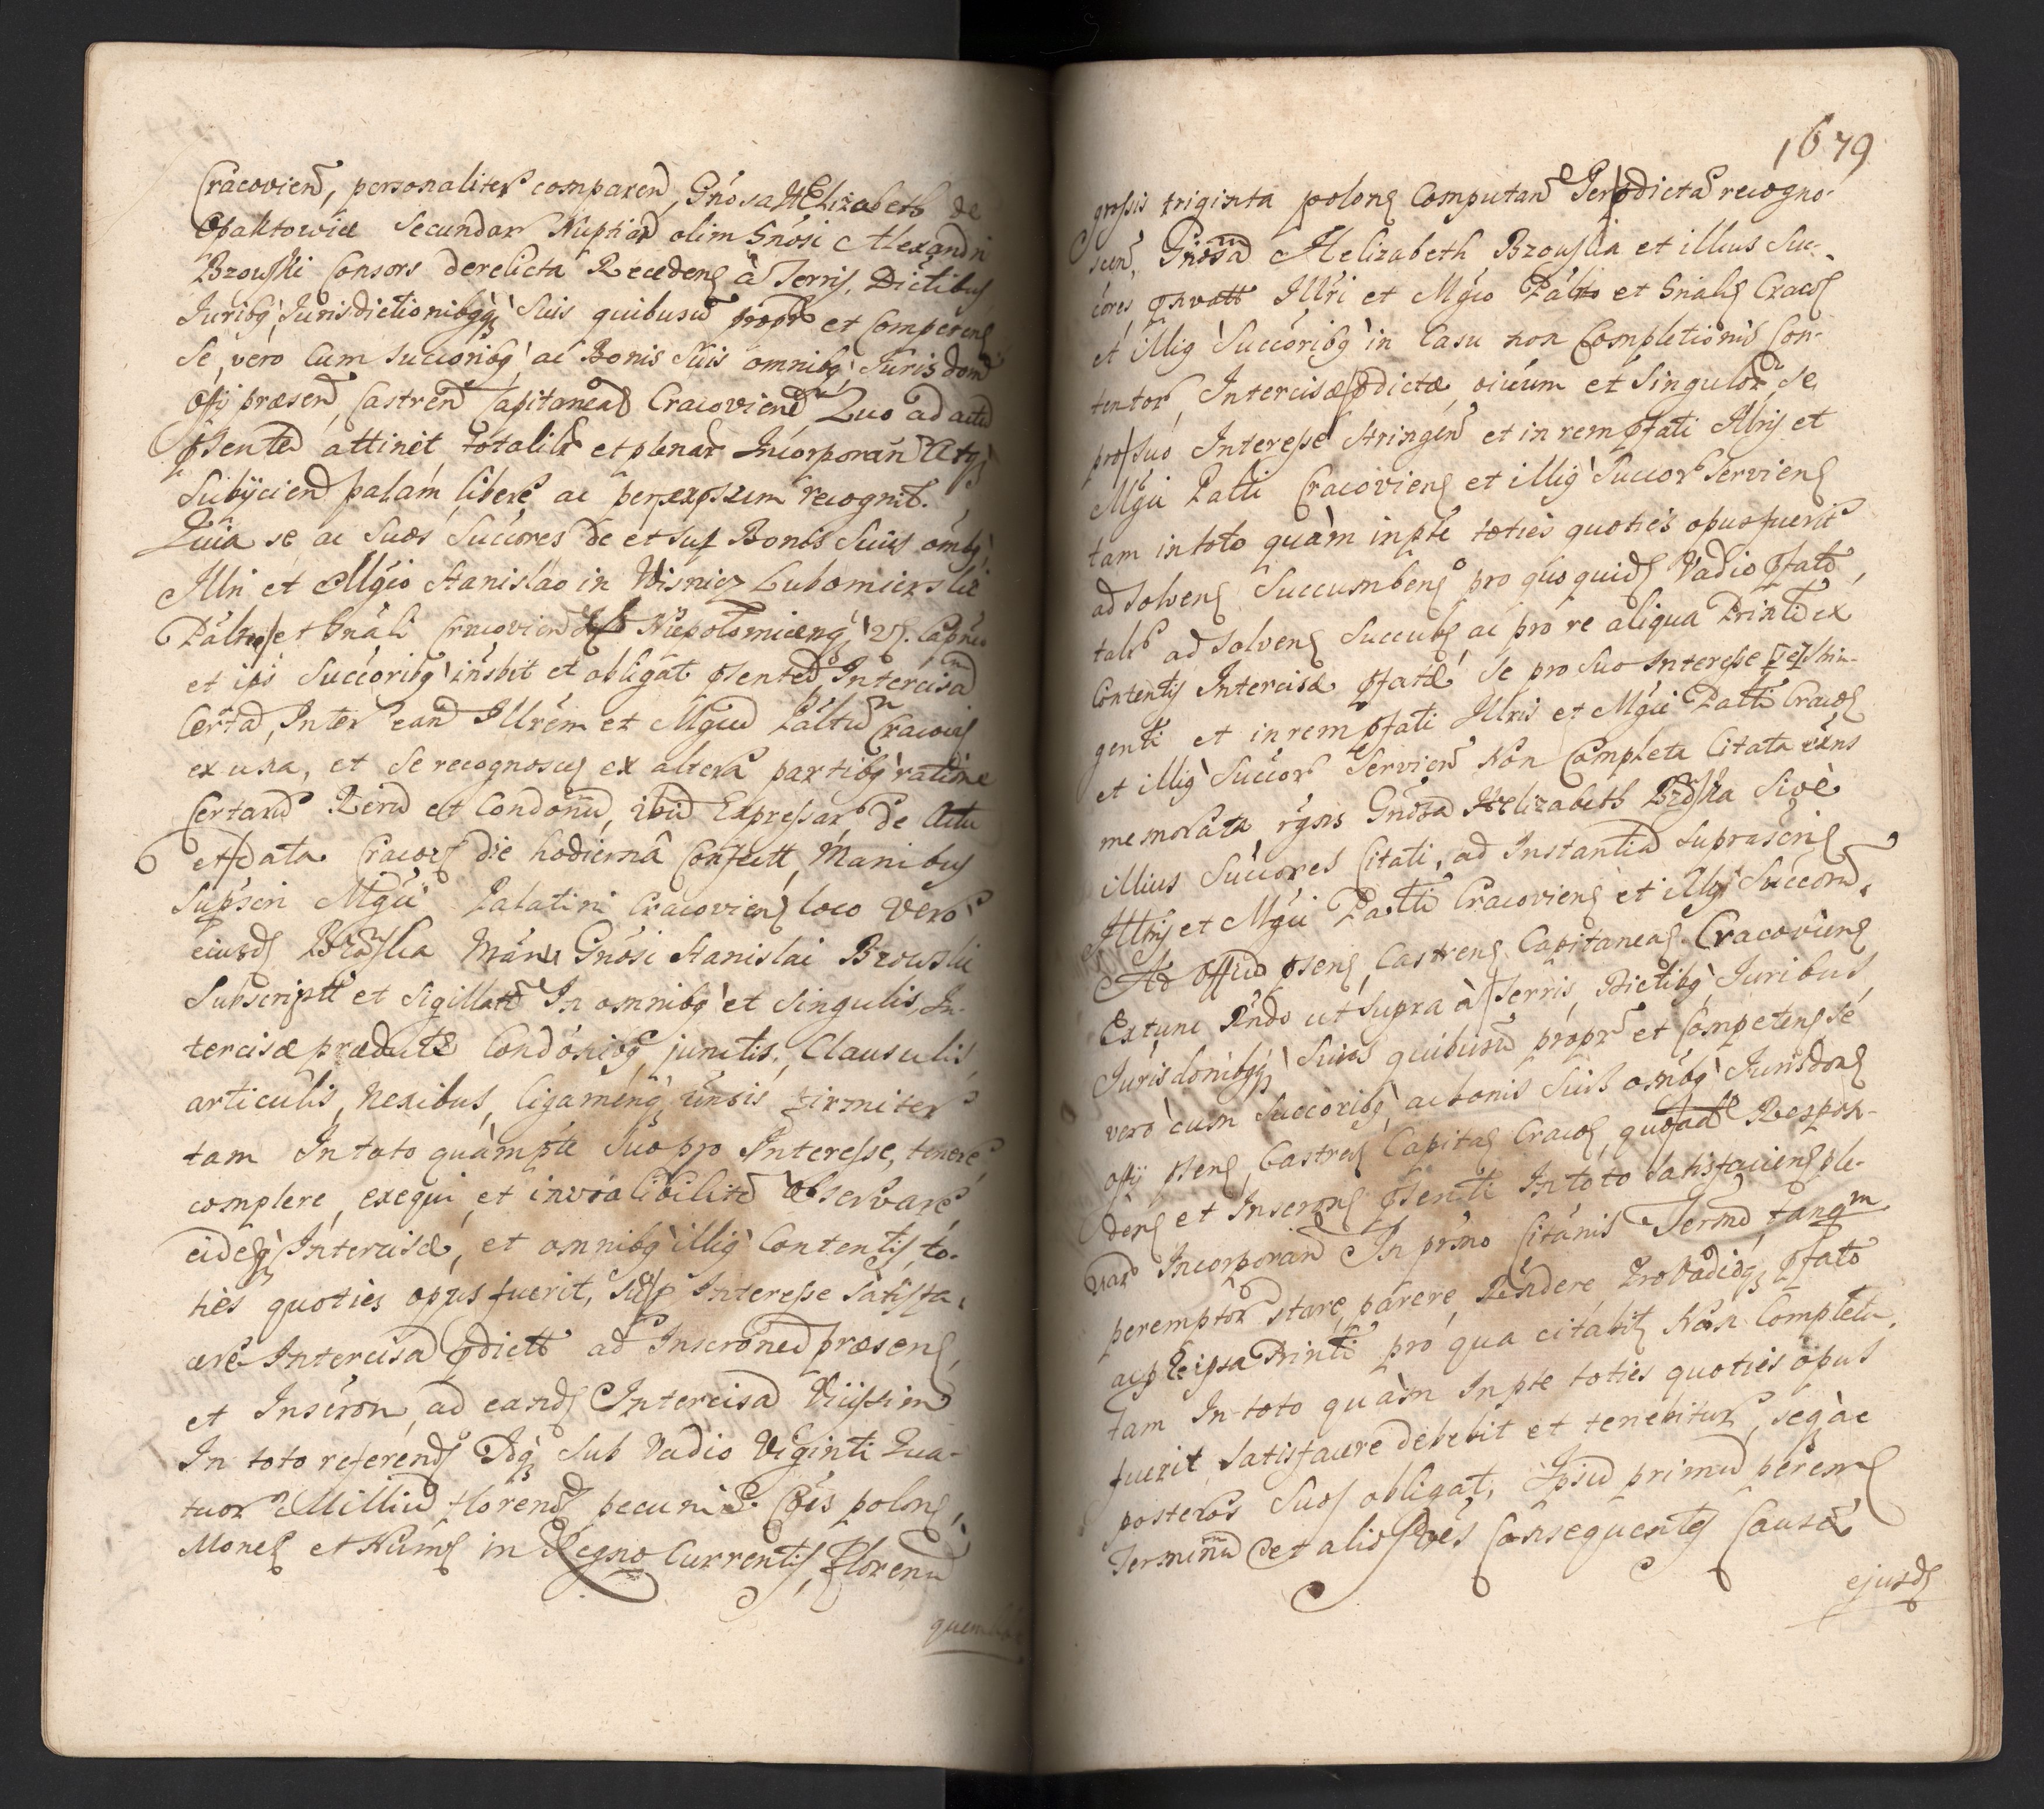 Cracovien, personaliter comparen, Gnosa Helizabeth de
Opaktowice Secundar Nuptiar olim Gnosi Alexandri
Brzowski Consors derelicta Receden à Terris, Dictibus
Juribq, Jurisdictionibqq Suis quibusu propr et Competen
Se, vero Cum Succoribq, ac Bonis Suis omnibq, Jurisdoni
Offy præsen, Castren Capitanea Cracovien, Quo ad actu
psente attinet totalitr et plenar Incorporan Atqs
Subijcien palam libere, ac per expssum recognit.
Quia se ac Suos Succores de et sup Bonis Suis omibq
Illri et Mgco Stanislao in Wisnicz Lubomierski
Palno et Gnali Cracovien Niepolomicenq, Capneo
et ipi Succoribq insbit et obligat psente Intercisa
Certa, Inter eand Illrem et Mgcu Paltu Cracovien
ex una, et Se recognoscen ex altera partibq ratione
Certaru Reru et Condonu, ibid Expressar de Actu
et data Cracoen die hodierna Confectt, Manibus
Supscri Mgci Palatini Cracovien loco Vero
eiusd Brzoska Manu Gnosi Stanislai Brzowski
Subscriptt et Sigillatt In omnibq et Singulis, In-
tercisæ prædictæ Condonibq, punctis, Clausulis,
articulis, Nexibus, ligamenq, unsis firmiter
tam In toto quàm pte Suo pro Interesse, tenere,
complere, exequi et inviolibilite observare
eideqs Intercisæ, et omnibq illiq Contentis, to-
ties quoties opus fuerit, Suo Interesse satisfa-
cere Intercisa pdictt ad Inscrone præsen,
et Inscron, ad eand Intercisa Viissim
In toto referend Idq Sub Vadio Viginti Qua-
tuor Milliu floren pecuniæ Cois polon,
Mone et Nume in Regno Currentis, Floren
quem

1679
grossis triginta polon Computan Per pdicta recogno-
scen, Gnosa Helizabeth Brzouska et illius Suc-
cores Illri et Mgco Palno et Gnali Craco
et illiq Succoribq in Casu non Completionis Con-
tentor, Intercisæ pdictæ, oium et Singulor, Se
pro Suo Interesse stringen et in rem pfati Illris et
Mgci Palti Cracovien et illiq Succor Servien
tam in toto quàm in pte toties quoties opus fuerit
ad Solven Succumben pro quo quid Vadio pfato,
talr ad Solven Succub ac pro re aliqua Printi ex
Contentis Intercisæ pfatæ Se pro Suo Interesse Se strin-
genti et in rem pfati Illris et Mgci Palti Craco
et illiq Succor Servien Non Completa Citata
memorata Gnosa Helizabeth Brzoska Sivè
illius Succores Citati, ad Instantia Suprascri
Illris et Mgci Palti Cracovien et illiq Succor,
Ad Officiu psen, Castren, Capitanea Cracovien
Extunc Rndo ut Supra à Terris, Dictibq, Juribus,
Jurisdonibqq, Suis quibusu propr et Competen Se
vero cum Succoribq, ac bonis Suis omibq Jurisdon
offy psen, Castren Capita Craco, quoad Respon-
den et Inscron psenti In toto Satisfacien ple-
nar Incorporan In primo Citanis Termo, tanqm
peremptor stare, parere, Rndere Pro Vadioq, pfato
ac re ipsa Printi pro qua citabit Non Completa,
tam In toto quàm In pte toties quoties opus
fuerit Satisfacere debebit et tenebitur, seq ac
posteros Suos obligat, Ipsu primu perem
Terminu et alios Consequentes Causæ
ejusd